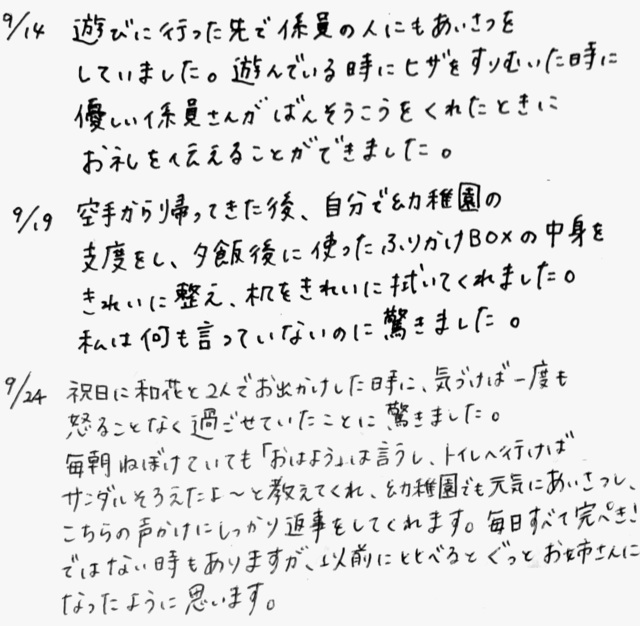 9/14 遊びに行った先で係員の人にもあいさつを
していました。遊んでいる時にヒザをすりむいた時に
優しい係員さんがばんそうこうをくれたときに
お礼を伝えることができました。
9/19 空手から帰ってきた後、自分で幼稚園の
支度をし、夕飯後に使ったふりかけBOXの中身を
きれいに整え、机をきれいに拭いてくれました。
私は何も言っていないのに驚きました。
9/24 祝日に和花と2人でお出かけした日時に、気づけば一度も
怒ることなく過ごせていたことに驚きました。
毎朝ねぼけていても「おはよう」は言うし、トイレへ行けば
サンダルそろえたよ〜と教えてくれ、幼稚園でも元気にあいさつし、
こちらの声かけにしっかり返事をしてくれます。毎日すべて完ぺき!
ではない時もありますが、以前にくらべるとぐっとお姉さんに
なったように思います。